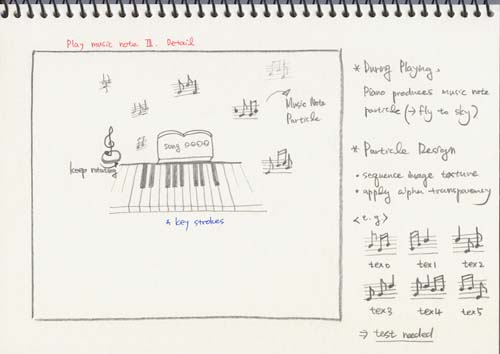 Play music note III. Detail
Music Note
Particle
Song
keep rotating
4 key strokes
* During Playing,
Piano produces music note
particle (→ fly to sky)
* Particle Design
• sequence image texture
• apply alpha transparency
<e.g>
tex0 tex1 tex2
tex3 tex4 tex5
⇒ test needed